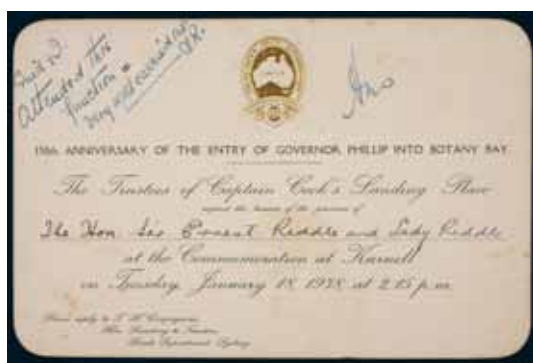 Attended this
function
very well carried out
150th ANNIVERSARY OF THE ENTRY OF GOVERNOR PHILLIP INTO BOTANY BAY
The Trustees of Captain Cook's Landing Place
request the honour of the presence of
The Hon Sir Ernest Riddle and Lady Riddle
at the Commemoration at Kurnell
on Tuesday January 18, 1938 at 2.15 p.m.
Please reply to
Hon. Secretary to Trustees
Lands Department, Sydney